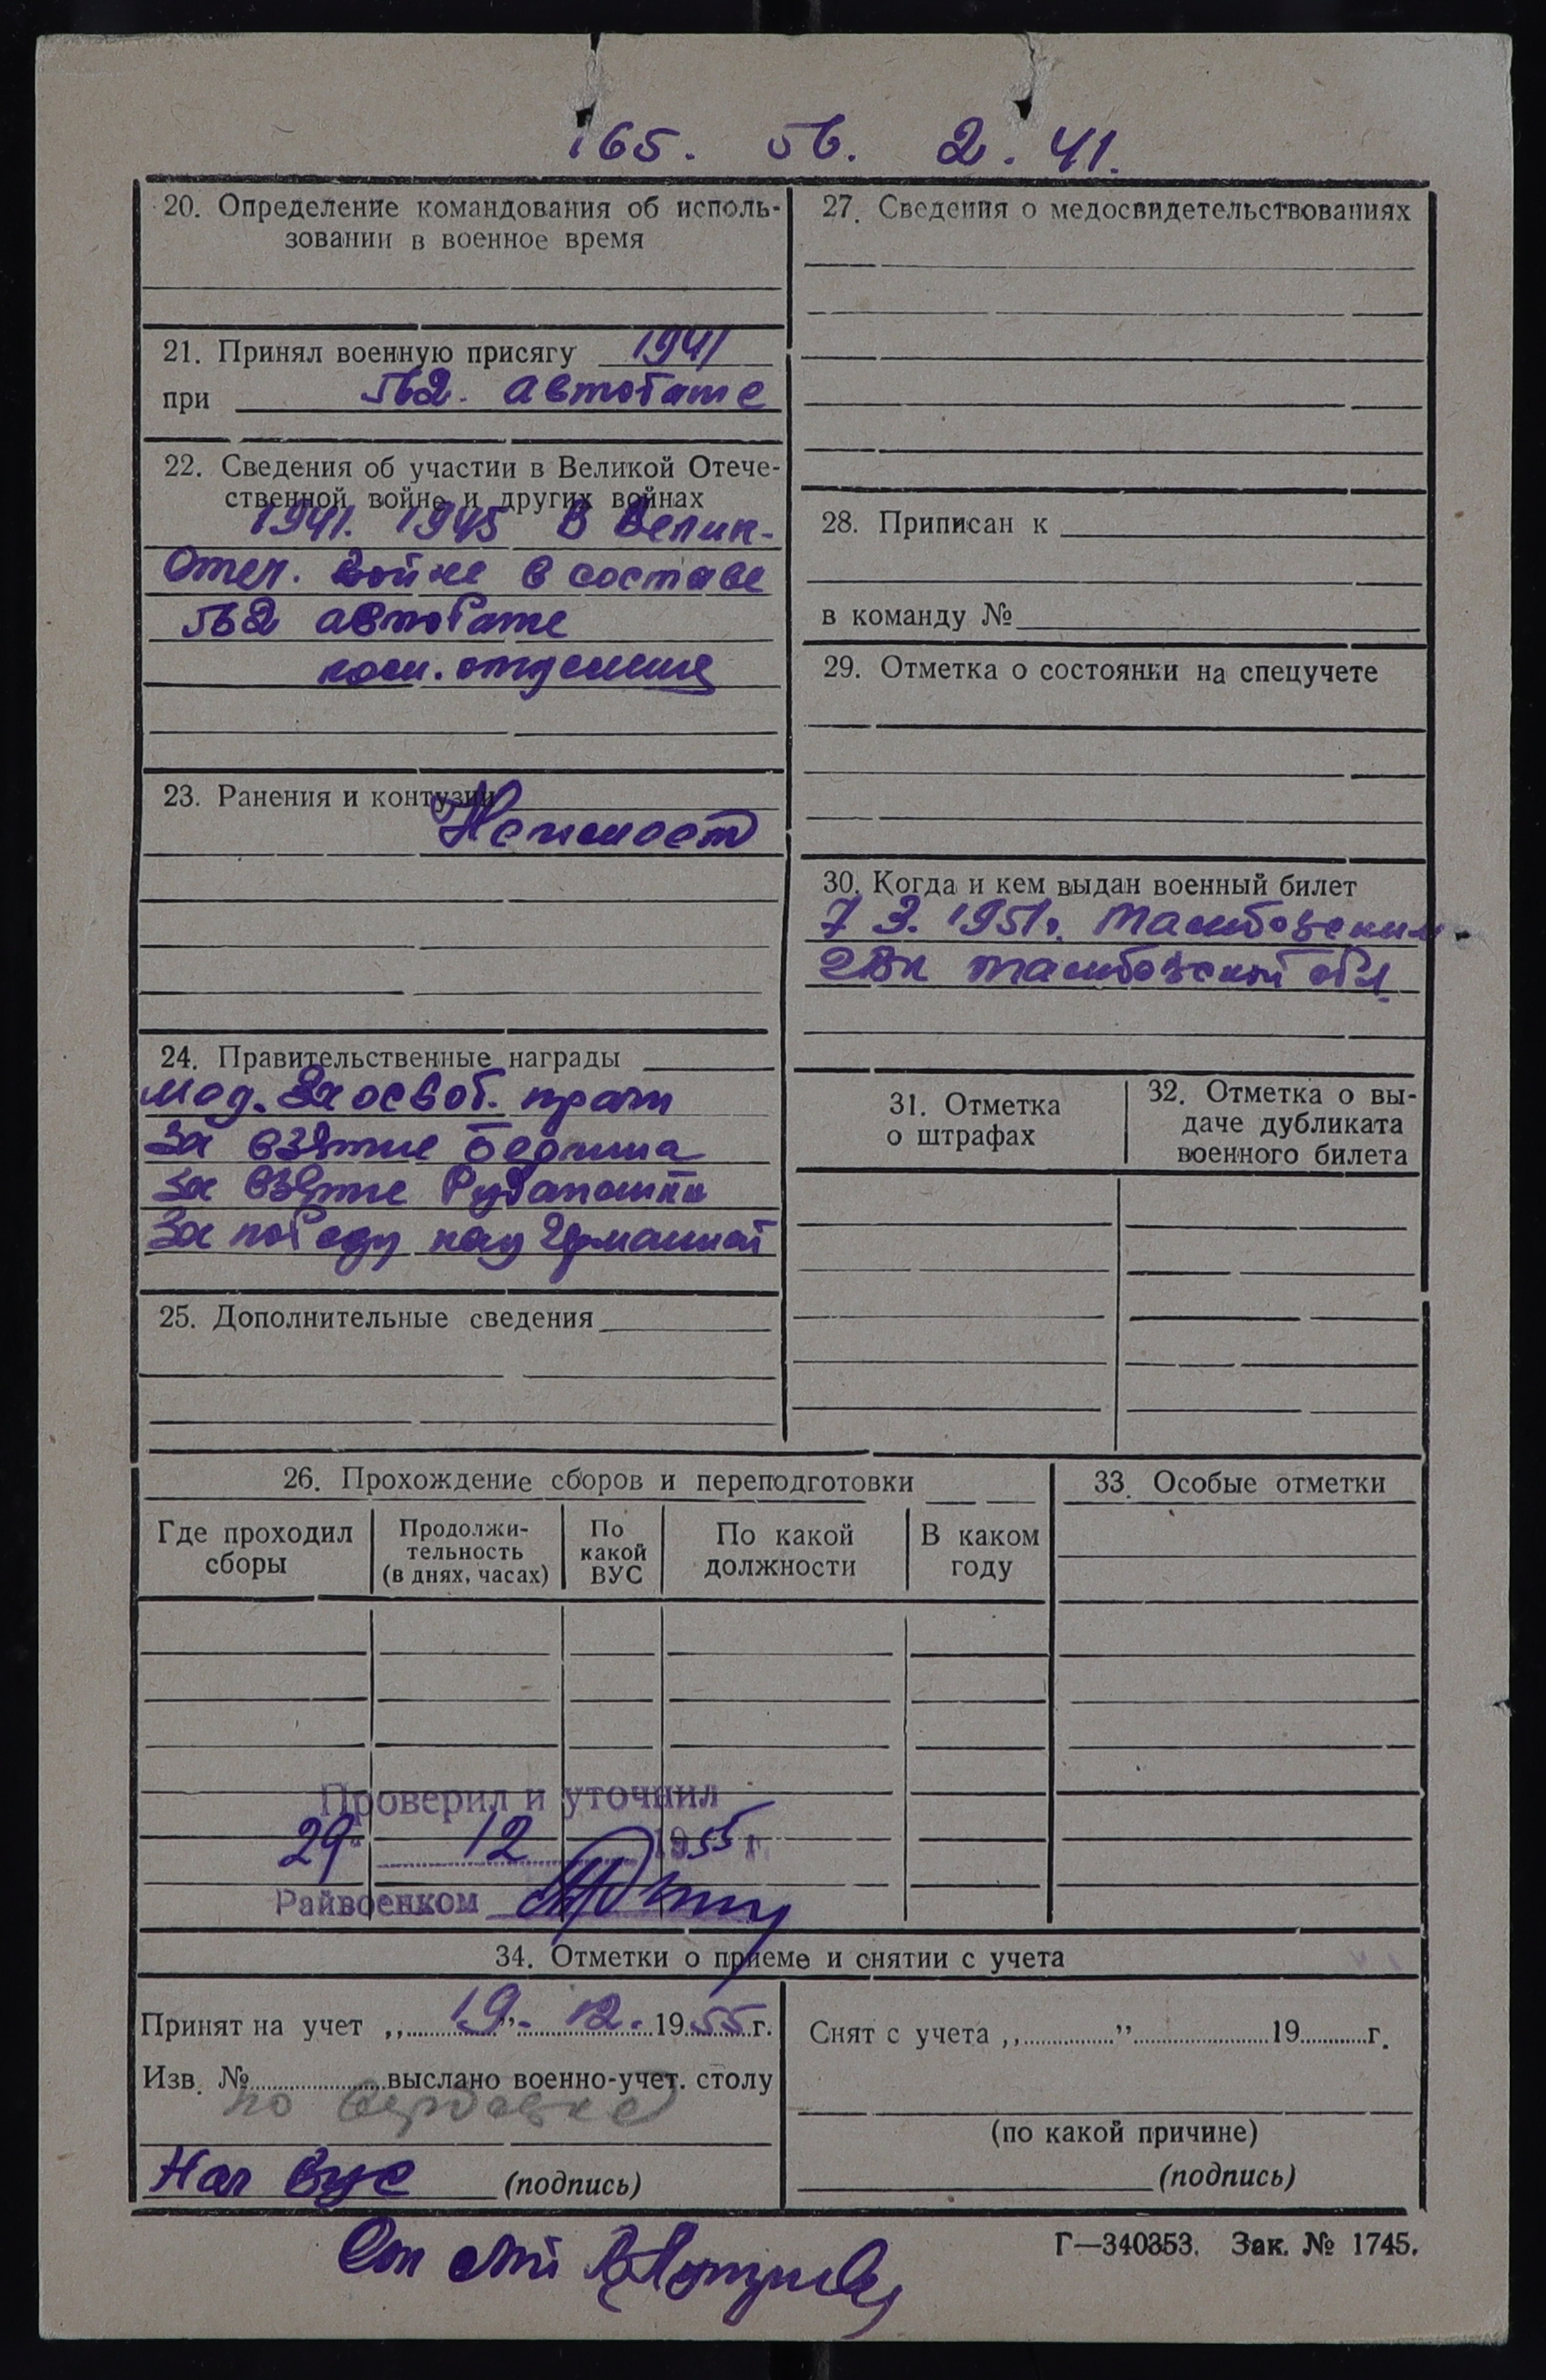 165. 56. 2. 41.
20. Определение командования об исполь-
зовании в военное время
21. Принял военную присягу 1941
при 562. автобате
22. Сведения об участии в Великой Отече-
ственной войне и других войнах
1941. 1945 В Велик-
Отеч. войне в составе
562 автобате
ком. отделения
23. Ранения и контузии
Не имеет
24. Правительственные награды
мед. За освоб. праги
За взятие Берлина
За взятие
За победу над Германией
25. Дополнительные сведения
27. Сведения о медосвидетельствованиях
28. Приписан к
в команду №
29. Отметка о состоянии на спецучете
30. Когда и кем выдан военный билет
7 3. 1951г. Тамбовским
ГВк тамбовской обл.
31. Отметка
о штрафах
32. Отметка о вы-
даче дубликата
военного билета
26. Прохождение сборов и переподготовки
Где проходил
сборы
Продолжи-
тельность
(в днях, часах)
По
какой
ВУС
По какой
должности
В каком
году
33. Особые отметки
Проверил и уточнил
29 12 1955 г.
Райвоенком
34. Отметки о приеме и снятии с учета
Принят на учет „ 19. ” 12. 1955 г.
Изв. № выслано военно-учет. столу
по
Нач Вус (подпись)
Снят с учета „ ” 19 г.
(по какой причине)
(подпись)
Г—340353. Зак. № 1745.